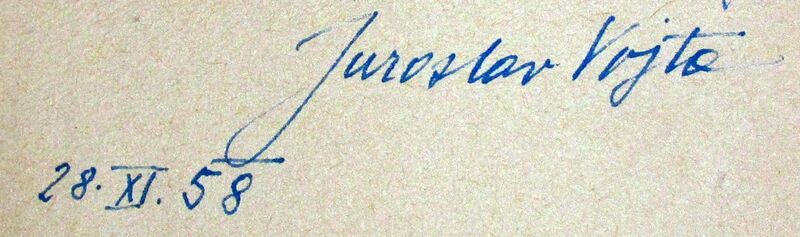 Jaroslav Vojta
28. XI. 58